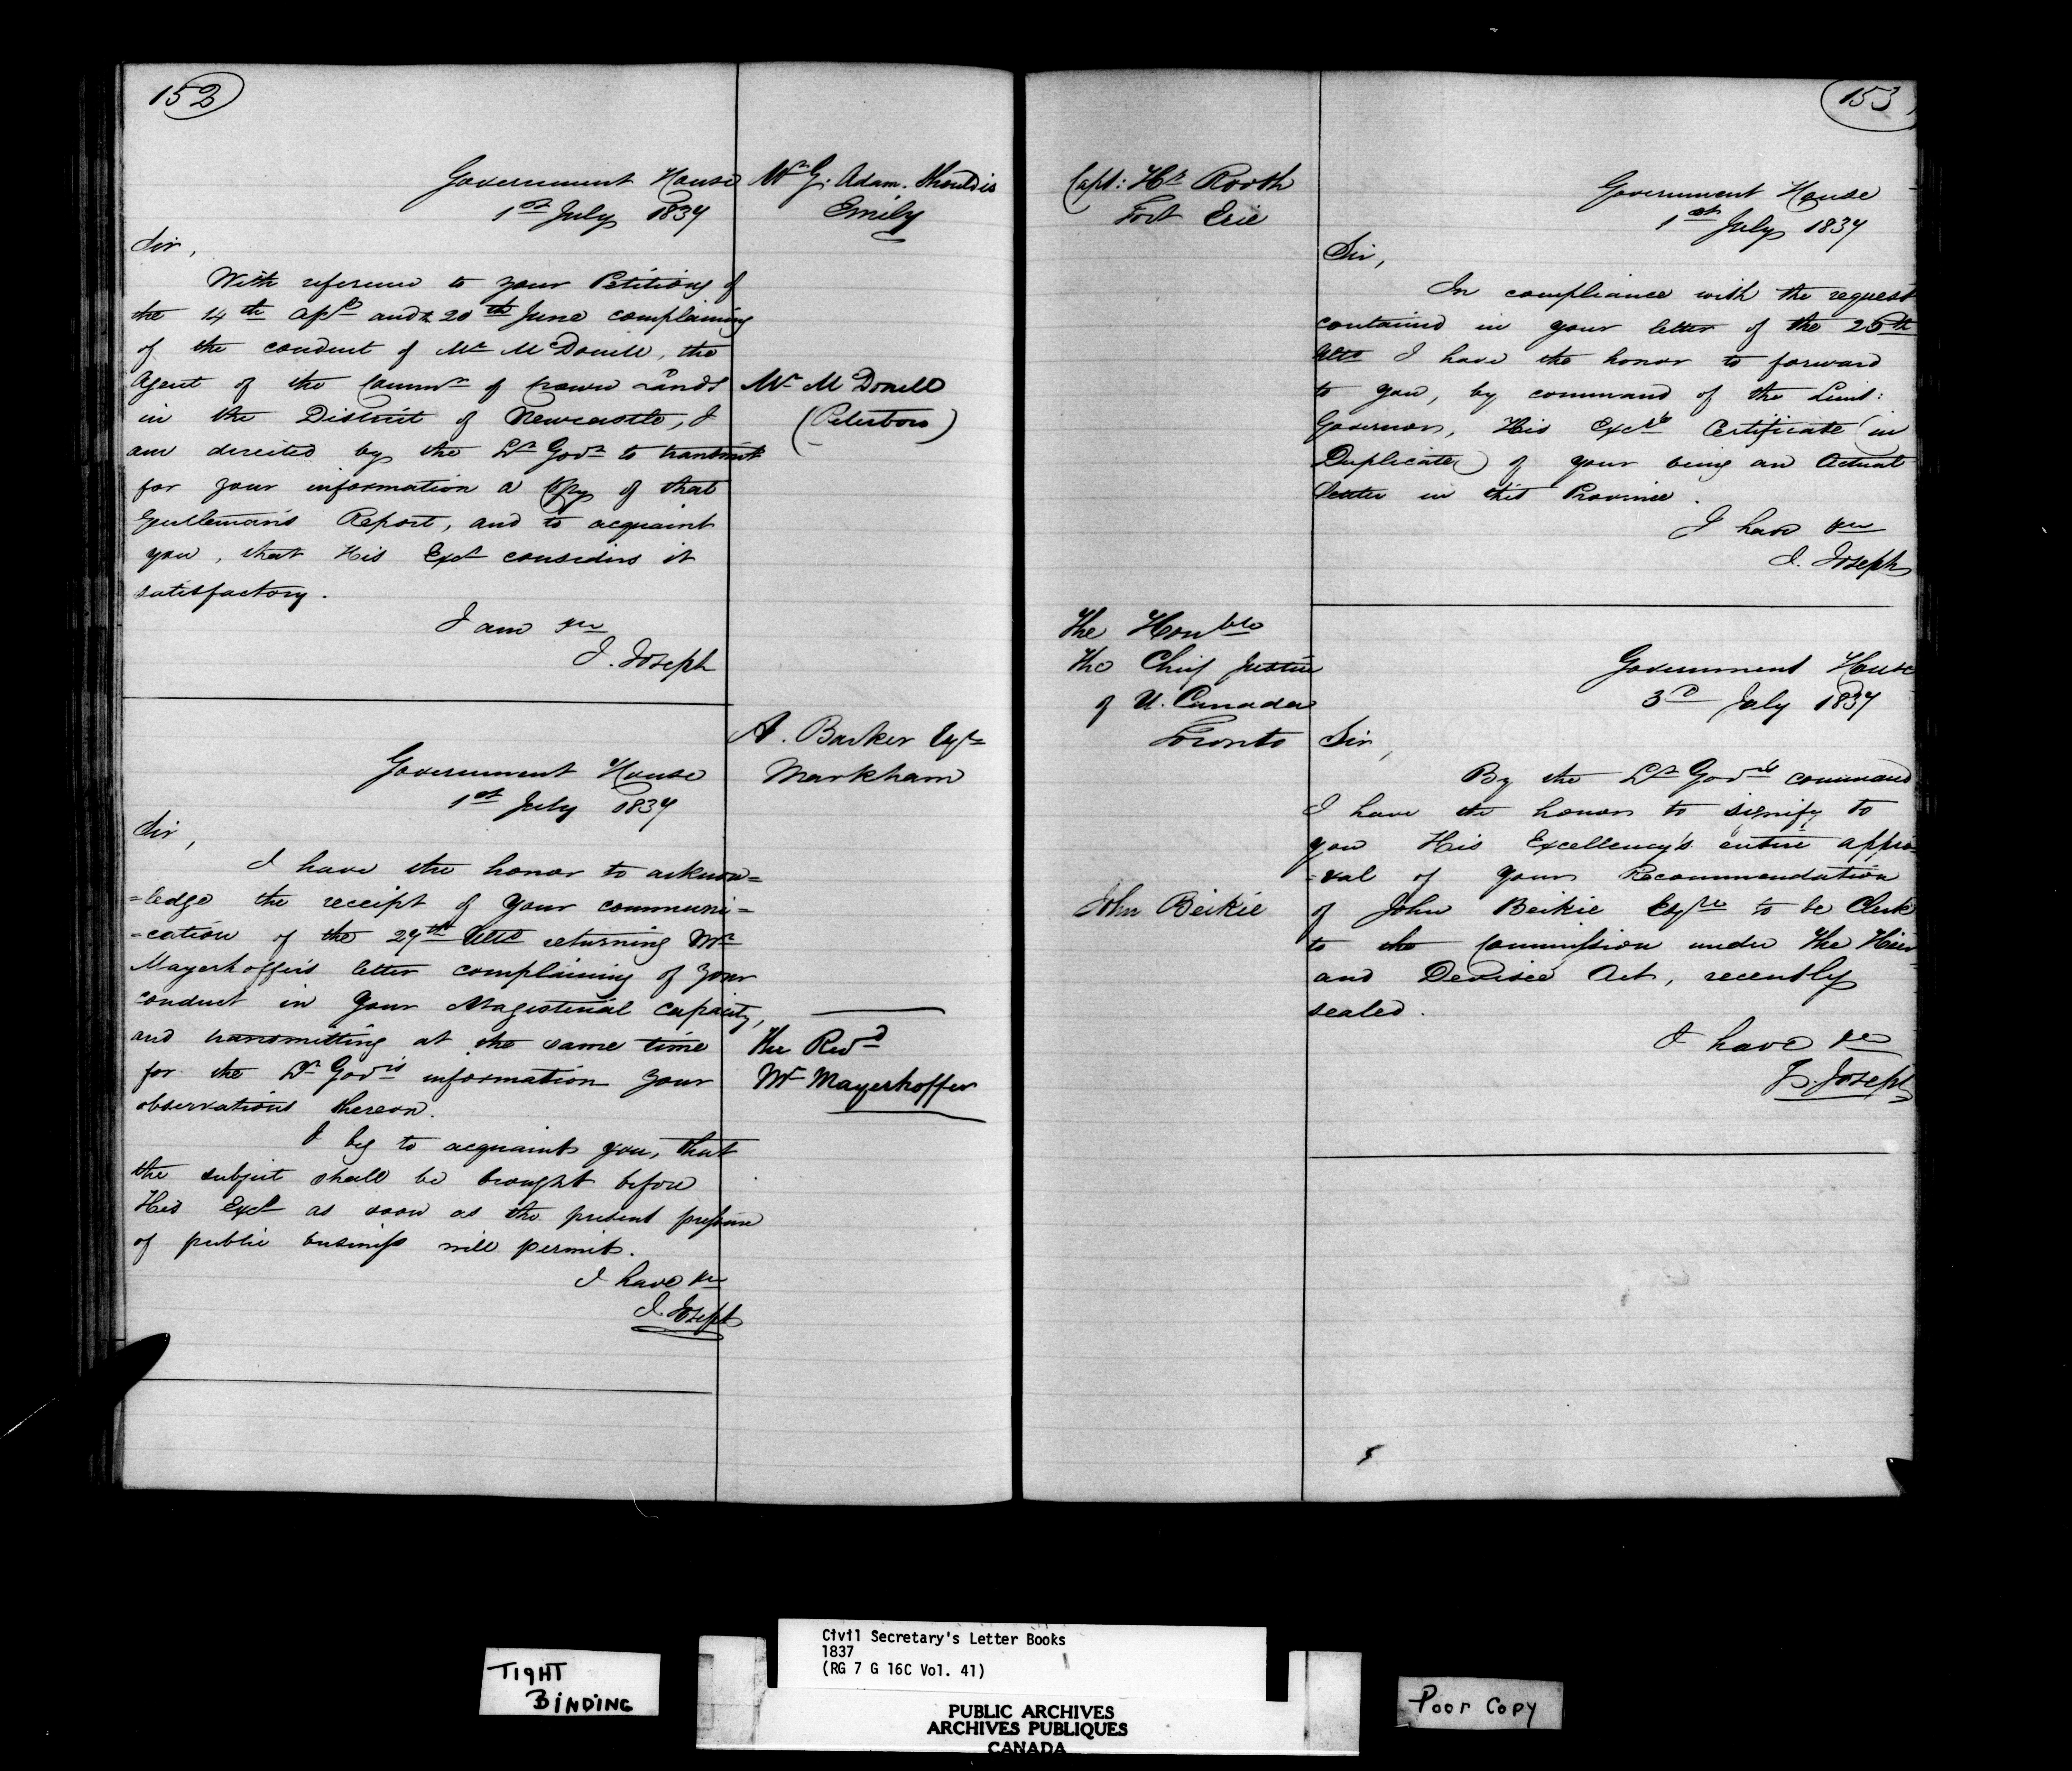 152
Government House
1st July 1837
Mr G. Adam. Shouldis
Emily
Sir,
With reference to your Petitions of
the 14th Apl and 20th June complaining
of the conduct of Mr McDonell, the
Agent of the Commr of Crown Lands
in the District of Newcastle, I
am directed by the Lt Govr to transmit
for your information a Copy of that
Gentleman's Report, and to acquaint
you, that His Excy considers it
satisfactory.
I am &c
J. Joseph
Mr McDonell
(Peterboro)
Government House
1st July 1837
A. Barker Esqre
Markham
Sir,
I have the honor to acknow=
=ledge the receipt of your communi=
=cation of the 29th Ulto returning Mr
Mayerhoffer's letter complaining of your
conduct in your Magisterial capacity,
and transmitting at the same time
for the Lt Govr's information your
observations thereon.
I beg to acquaint you, that
the subject shall be brought before
His Excy as soon as the present pressure
of public business will permit.
I have &c
J. Joseph
The Revd
Mr Mayerhoffer
153
Capt: Hy Rooth
Fort Erie
Government House
1st July 1837
Sir,
In compliance with the request
contained in your letter of the 25th
Ulto I have the honor to forward
to you, by command of the Lieut:
Governor, His Excys Certificate (in
Duplicate) of your being an Actual
Settler in this Province.
I have &c
J. Joseph
The Honble
The Chief Justice
of U. Canada
Toronto
Government House
3d July 1837
Sir,
By the Lt Govrs command
I have the honor to signify to
you His Excellency's entire appro=
=val of your Recommendation
of John Beikie Esqre to be Clerk
to the Commission under the Heir
and Devisee Act, recently
sealed.
I have &c
J. Joseph
John Beikie
TIGHT
BINDING
Civil Secretary's Letter Books
1837
(RG 7 G 16C Vol. 41)
PUBLIC ARCHIVES
ARCHIVES PUBLIQUES
CANADA
Poor Copy